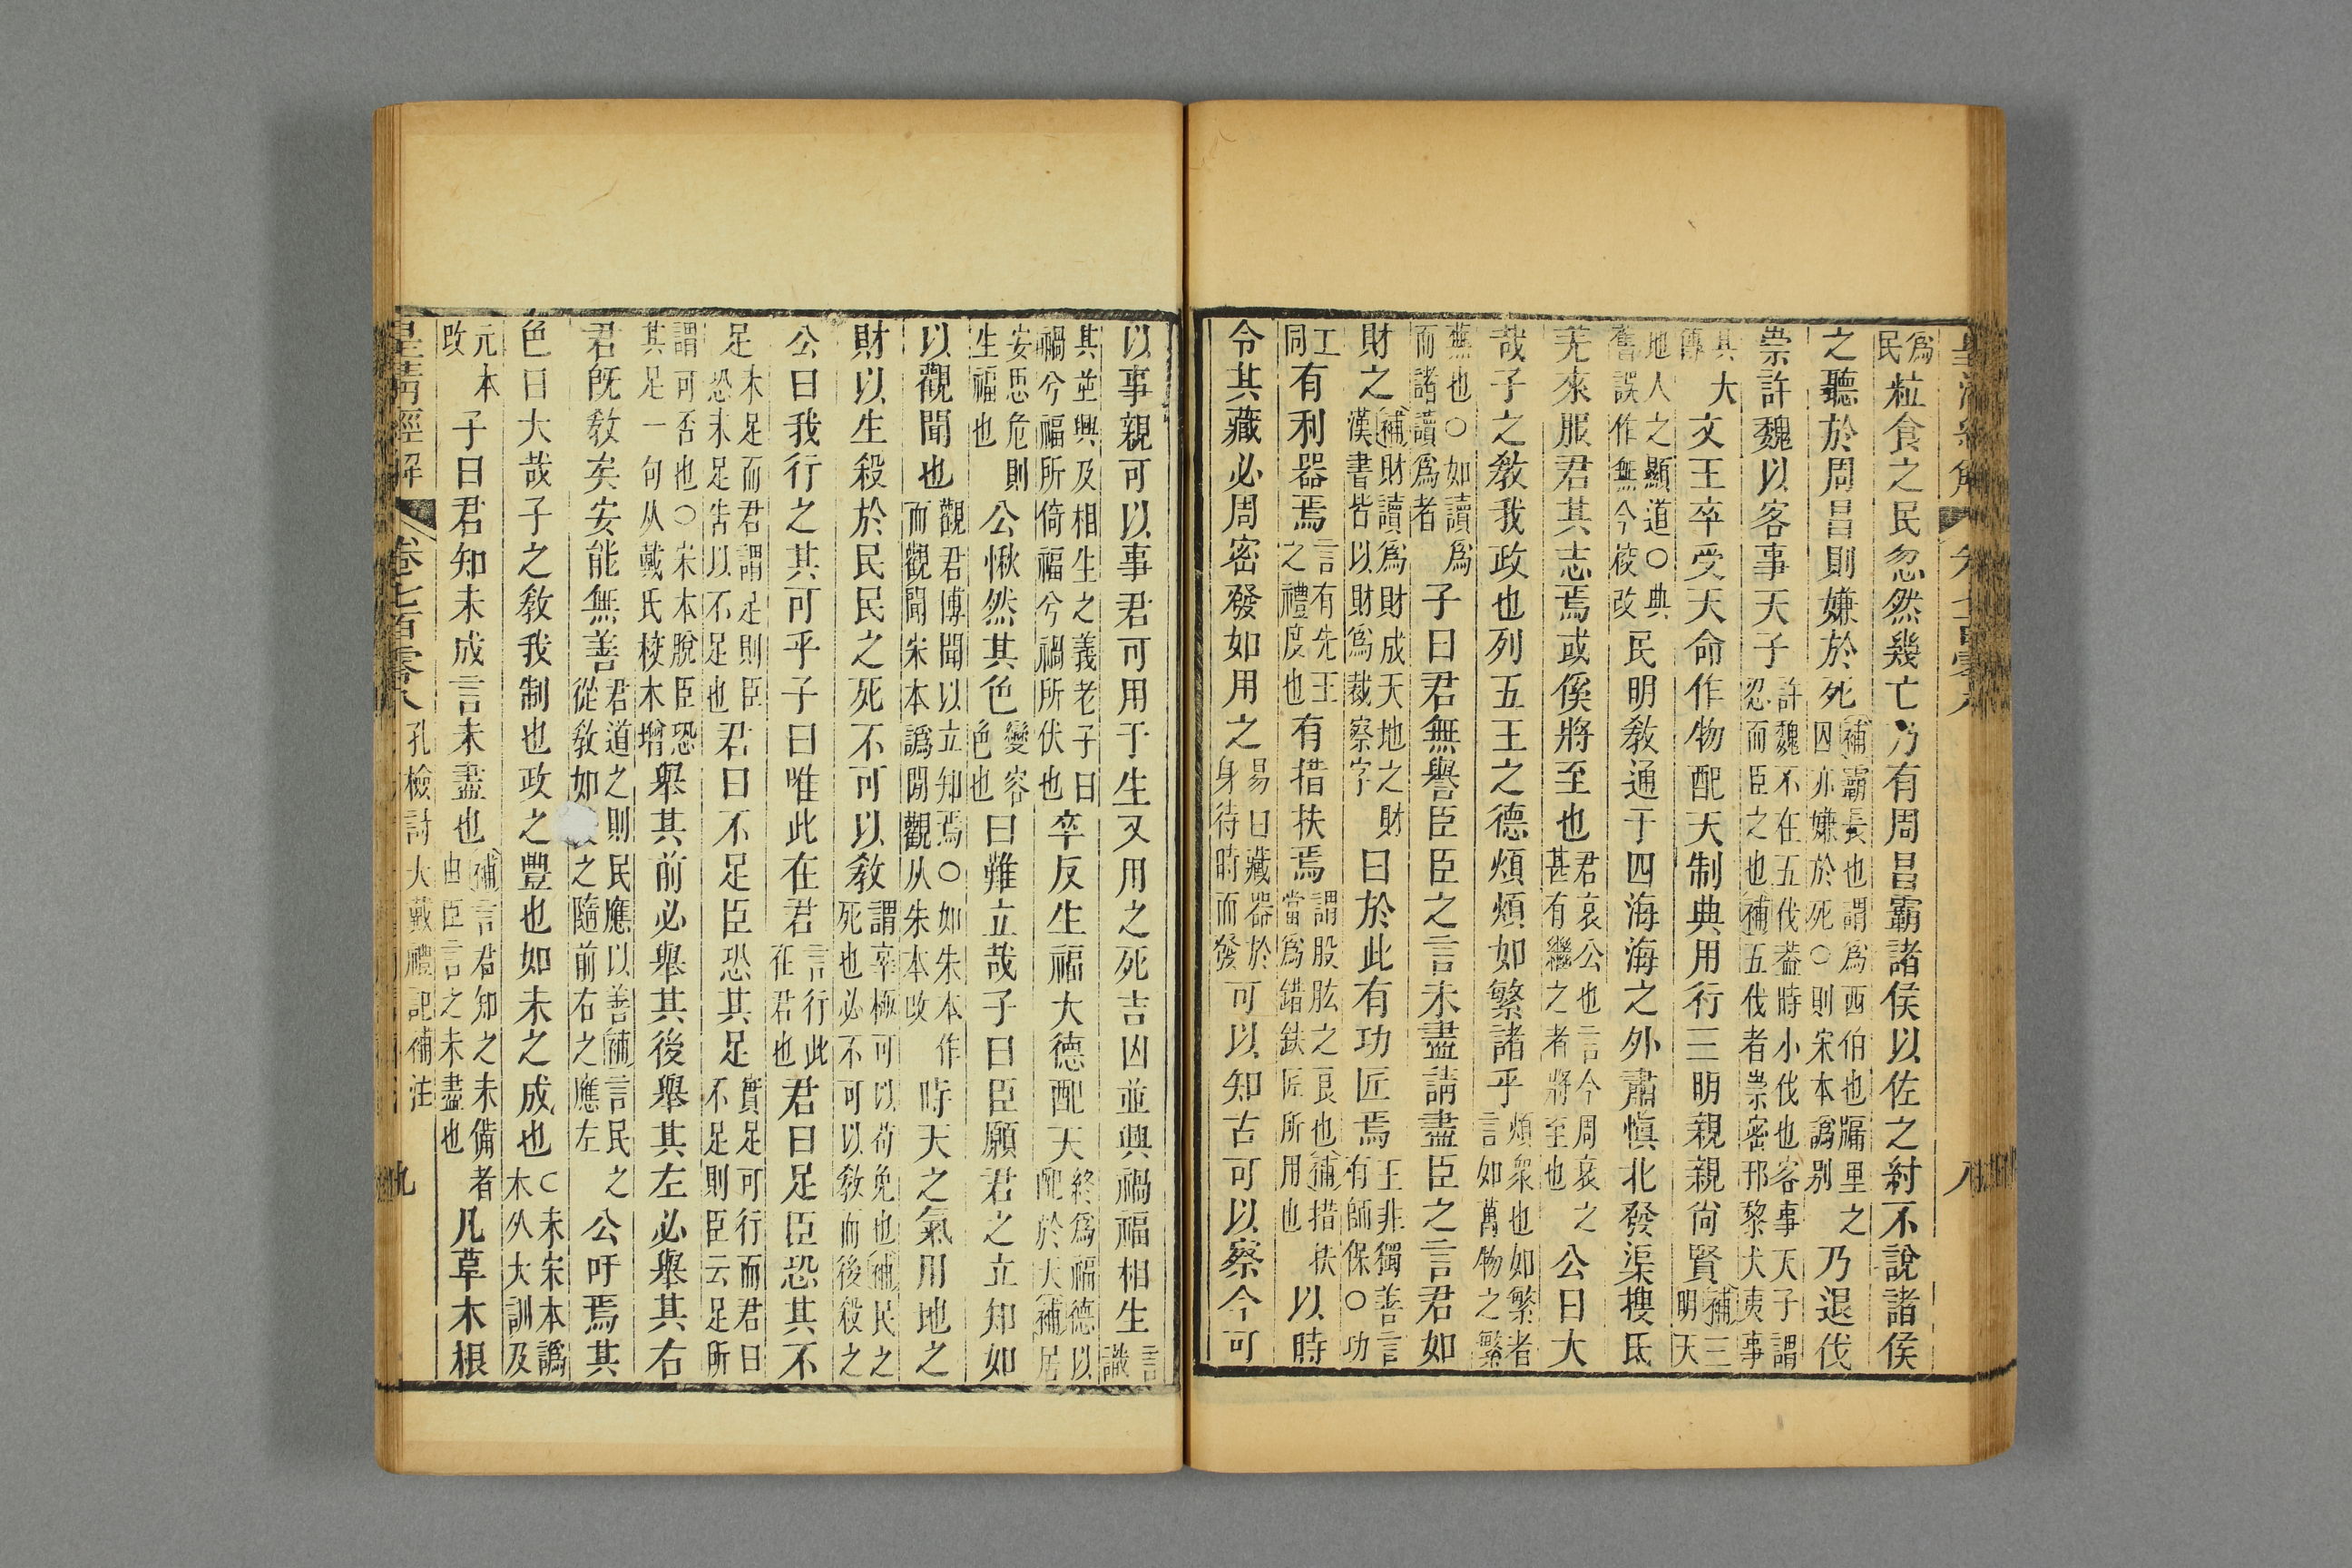 皇清經解 卷七百零八 八
爲民粒食之民忽然幾亡乃有周昌霸諸侯以佐之紂不說諸侯
之聽於周昌則嫌於死補霸長也謂爲西伯也牖里之囚亦嫌於死○則宋本譌别乃退伐
崇許魏以客事天子許魏不在五伐葢時小伐也客事天子謂忍而臣之也補五伐者崇密邘黎犬夷事
其大傳文王卒受天命作物配天制典用行三明親親尙賢補三明天
地人之顯道○典舊誤作無今校改民明敎通于四海海之外肅愼北發渠搜氐
羌來服君其志焉或傒將至也君哀公也言今周衰之甚有繼之者將至也公曰大
哉子之敎我政也列五王之德煩煩如繁諸乎煩衆也如繁者言如萬物之繁
蕪也○如讀爲而諸讀爲者子曰君無譽臣臣之言未盡請盡臣之言君如
財之補財讀爲財成天地之財漢書皆以財爲裁察字曰於此有功匠焉王非獨善言有師保○功
工同有利器焉言有先王之禮度也有措扶焉謂股肱之良也補措扶當爲錯鈇匠所用也以時
令其藏必周密發如用之易曰藏器於身待時而發可以知古可以察今可
以事親可以事君可用于生又用之死吉凶並興禍福相生言識
其並興及相生之義老子曰禍兮福所倚福兮禍所伏也卒反生福大德配天終爲福德以配於天補居
安思危則生福也公愀然其色變容色也曰難立哉子曰臣願君之立知如
以觀聞也觀君博聞以立知焉○如朱本作而觀聞朱本譌聞觀从朱本改時天之氣用地之
財以生殺於民民之死不可以敎謂卒極可以苟免也補民之死也必不可以敎而後殺之
公曰我行之其可乎子曰唯此在君言行此在君也君曰足臣恐其不
足未足而君謂足則臣恐未足告以不足也君曰不足臣恐其足實足可行而君曰不足則臣云足所
謂可否也○宋本脫臣恐其足一句从戴氏校本增舉其前必舉其後舉其左必舉其右
君旣敎矣安能無善君道之則民應以善補言民之從敎如之隨前右之應左公吁焉其
色曰大哉子之敎我制也政之豐也如未之成也○未宋本譌木从大訓及
元本改子曰君知未成言未盡也補言君知之未備者由臣言之未盡也凡草木根
皇清經解 卷七百零八 孔檢討大戴禮記補注 九